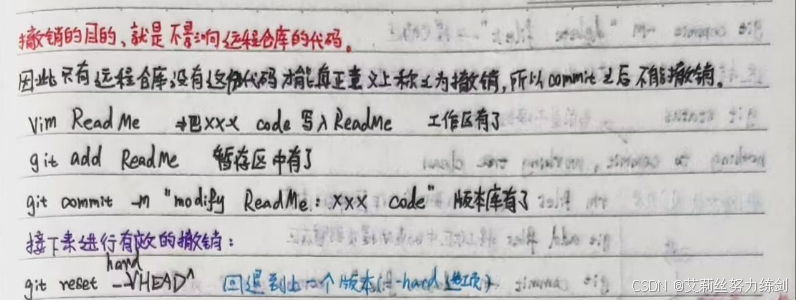 撤销的目的、就是不影响远程仓库的代码。
因此只有远程仓库没有这份代码才能真正意义上称之为撤销,所以commit之后不能撤销。
Vim ReadMe 把XXX code 写入ReadMe 工作区有了
git add ReadMe 暂存区中有了
git commit -m "modify ReadMe: XXX code" 版本库有了
接下来进行有效的撤销:
git reset --hard HEAD^ 回退到上一个版本(--hard选项)
CSDN @艾莉丝努力练剑